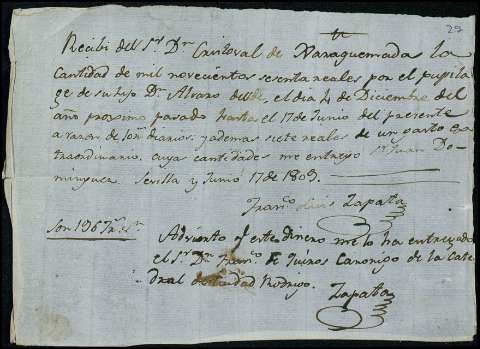 29
Recibi del Sr. Dn. Cristoval de Varaguemada la
Cantidad de mil novecientos sesenta reales por el pupila
ge de su hijo Dn. Alvaro desde el dia 4 de Diciembre del
año proximo pasado hasta el 17 de Junio del presente
a razon de diarios. y ademas siete reales de un gasto ex
traordinario, cuyas cantidades me entregó Juan Do
minguez. Sevilla y Junio 17 de 1809.
Zapata
Son 1967
Advierto q este dinero me lo ha entregado
el Sr. Dn. Franco. de Quiros Canonigo de la Cate
dral de Ciudad Rodrigo.
Zapata